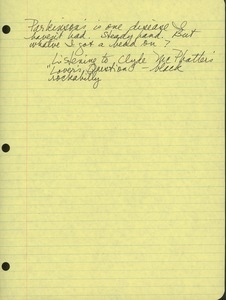 Parkinson's is one disease I
haven't had. Steady hand. But
what've I got a bead on?
Listening to Clyde McPhatter's
"Lover's Question" – black
rockabilly